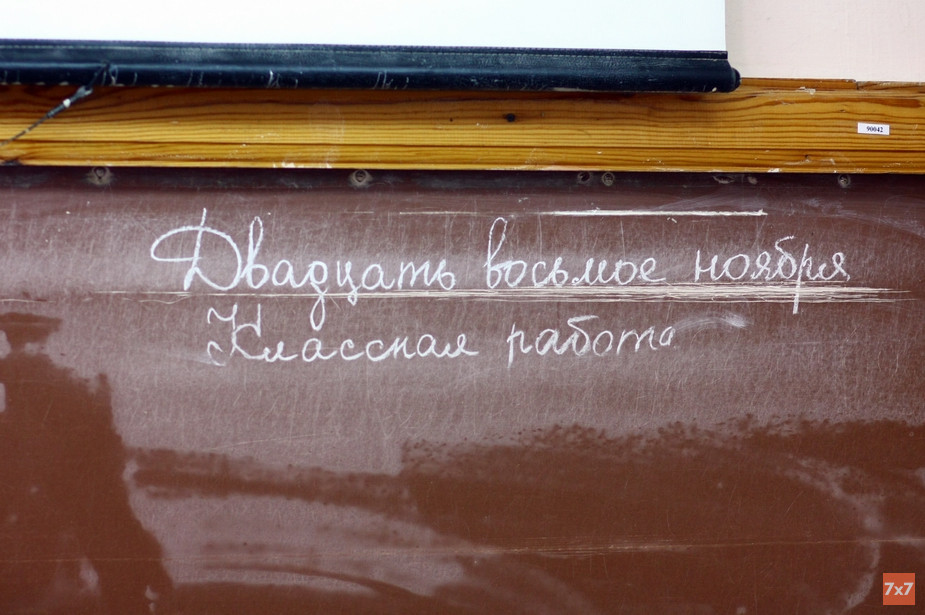 90042
Двадцать восьмое ноября
Классная работа
7x7